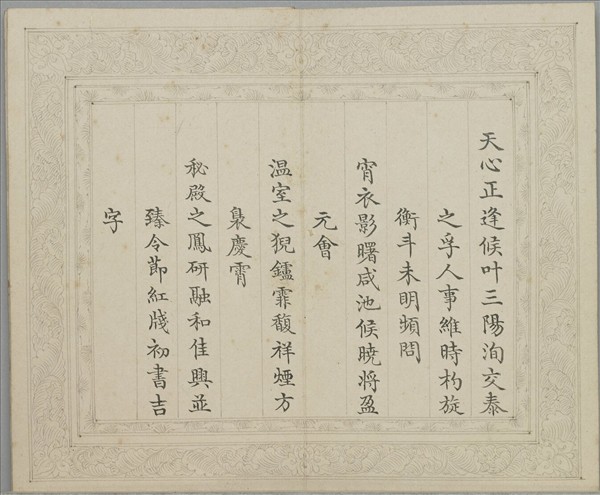 天心正逢候叶三陽洵交泰
之孚人事維時杓旋
衡斗未明頻問
宵衣影曙咸池候曉将盈
元會
温室之猊鑪霏馥祥煙方
裊慶霄
秘殿之鳳研融和佳興並
臻令節紅牋初書吉
字